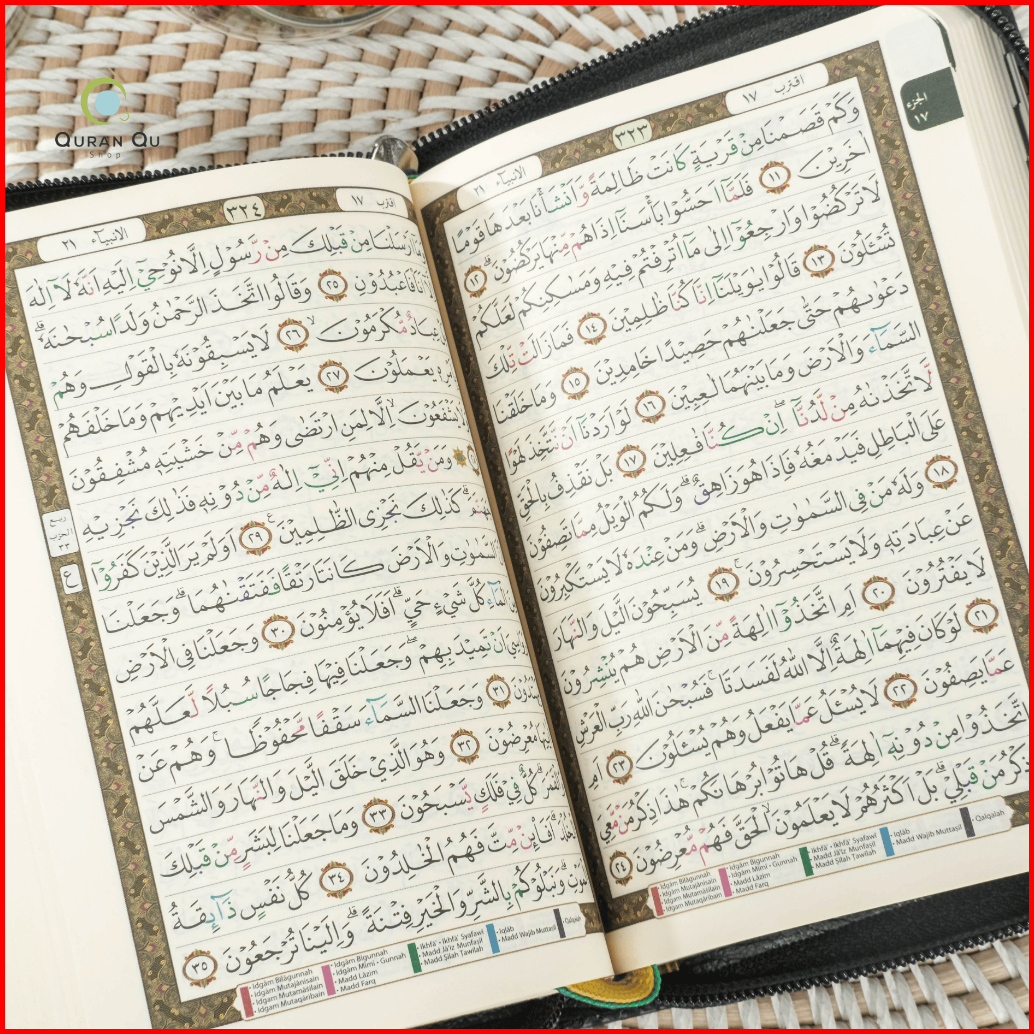 الجزء
١٧
اقترب ١٧
٣٢٣
الانبياء ٢١
وَكَمْ قَصَمْنَا مِنْ قَرْيَةٍ كَانَتْ ظَالِمَةً وَّاَنْشَأْنَا بَعْدَهَا قَوْمًا
اٰخَرِيْنَ ١١ فَلَمَّآ اَحَسُّوْا بَأْسَنَآ اِذَا هُمْ مِّنْهَا يَرْكُضُوْنَ ۗ ١٢
لَا تَرْكُضُوْا وَارْجِعُوْٓا اِلٰى مَآ اُتْرِفْتُمْ فِيْهِ وَمَسٰكِنِكُمْ لَعَلَّكُمْ
تُسْـَٔلُوْنَ ١٣ قَالُوْا يٰوَيْلَنَآ اِنَّا كُنَّا ظٰلِمِيْنَ ١٤ فَمَا زَالَتْ تِّلْكَ
دَعْوٰىهُمْ حَتّٰى جَعَلْنٰهُمْ حَصِيْدًا خٰمِدِيْنَ ١٥ وَمَا خَلَقْنَا
السَّمَاۤءَ وَالْاَرْضَ وَمَا بَيْنَهُمَا لٰعِبِيْنَ ١٦ لَوْ اَرَدْنَآ اَنْ نَّتَّخِذَ لَهْوًا
لَّاتَّخَذْنٰهُ مِنْ لَّدُنَّآ ۖ اِنْ كُنَّا فٰعِلِيْنَ ١٧ بَلْ نَقْذِفُ بِالْحَقِّ
عَلَى الْبَاطِلِ فَيَدْمَغُهٗ فَاِذَا هُوَ زَاهِقٌ ۗ وَلَكُمُ الْوَيْلُ مِمَّا تَصِفُوْنَ
١٨ وَلَهٗ مَنْ فِى السَّمٰوٰتِ وَالْاَرْضِ ۗ وَمَنْ عِنْدَهٗ لَا يَسْتَكْبِرُوْنَ
عَنْ عِبَادَتِهٖ وَلَا يَسْتَحْسِرُوْنَ ۚ ١٩ يُسَبِّحُوْنَ الَّيْلَ وَالنَّهَارَ
لَا يَفْتُرُوْنَ ٢٠ اَمِ اتَّخَذُوْٓا اٰلِهَةً مِّنَ الْاَرْضِ هُمْ يُنْشِرُوْنَ
٢١ لَوْ كَانَ فِيْهِمَآ اٰلِهَةٌ اِلَّا اللّٰهُ لَفَسَدَتَا ۚ فَسُبْحٰنَ اللّٰهِ رَبِّ الْعَرْشِ
عَمَّا يَصِفُوْنَ ٢٢ لَا يُسْـَٔلُ عَمَّا يَفْعَلُ وَهُمْ يُسْـَٔلُوْنَ ٢٣ اَمِ
اتَّخَذُوْا مِنْ دُوْنِهٖٓ اٰلِهَةً ۗ قُلْ هَاتُوْا بُرْهَانَكُمْ ۚ هٰذَا ذِكْرُ مَنْ مَّعِيَ
ذِكْرُ مَنْ قَبْلِيْ ۗ بَلْ اَكْثَرُهُمْ لَا يَعْلَمُوْنَ ۙ الْحَقَّ فَهُمْ مُّعْرِضُوْنَ ٢٤
• Idgām Bilāgunnah
• Idgām Mutajānisain
• Idgām Mutamāṡilain
• Idgam Mutaqāribain
• Idgām Bigunnah
• Idgām Mimi • Gunnah
• Madd Lāzim
• Madd Farq
• Ikhfā' • Ikhfā' Syafawī
• Madd Jā'iz Munfaṣil
• Madd Ṣilah Ṭawīlah
• Iqlāb
• Madd Wajib Muttasil
• Qalqalah
اقترب ١٧
٣٢٤
الانبياء ٢١
اَرْسَلْنَا مِنْ قَبْلِكَ مِنْ رَّسُوْلٍ اِلَّا نُوْحِيْٓ اِلَيْهِ اَنَّهٗ لَآ اِلٰهَ
اَنَا۠ فَاعْبُدُوْنِ ٢٥ وَقَالُوا اتَّخَذَ الرَّحْمٰنُ وَلَدًا سُبْحٰنَهٗ ۗ
عِبَادٌ مُّكْرَمُوْنَ ۙ ٢٦ لَا يَسْبِقُوْنَهٗ بِالْقَوْلِ وَهُمْ
يَعْمَلُوْنَ ٢٧ يَعْلَمُ مَا بَيْنَ اَيْدِيْهِمْ وَمَا خَلْفَهُمْ
يَشْفَعُوْنَ ۙ اِلَّا لِمَنِ ارْتَضٰى وَهُمْ مِّنْ خَشْيَتِهٖ مُشْفِقُوْنَ
وَمَنْ يَّقُلْ مِنْهُمْ اِنِّيْٓ اِلٰهٌ مِّنْ دُوْنِهٖ فَذٰلِكَ نَجْزِيْهِ
كَذٰلِكَ نَجْزِى الظّٰلِمِيْنَ ࣖ ٢٩ اَوَلَمْ يَرَ الَّذِيْنَ كَفَرُوْٓا
السَّمٰوٰتِ وَالْاَرْضَ كَانَتَا رَتْقًا فَفَتَقْنٰهُمَا ۗ وَجَعَلْنَا
الْمَاۤءِ كُلَّ شَيْءٍ حَيٍّ ۗ اَفَلَا يُؤْمِنُوْنَ ٣٠ وَجَعَلْنَا فِى الْاَرْضِ
اَنْ تَمِيْدَ بِهِمْ ۖ وَجَعَلْنَا فِيْهَا فِجَاجًا سُبُلًا لَّعَلَّهُمْ
٣١ وَجَعَلْنَا السَّمَاۤءَ سَقْفًا مَّحْفُوْظًا ۚ وَهُمْ عَنْ
مُعْرِضُوْنَ ٣٢ وَهُوَ الَّذِيْ خَلَقَ الَّيْلَ وَالنَّهَارَ وَالشَّمْسَ
وَالْقَمَرَ ۗ كُلٌّ فِيْ فَلَكٍ يَّسْبَحُوْنَ ٣٣ وَمَا جَعَلْنَا لِبَشَرٍ مِّنْ قَبْلِكَ
اَفَا۟ىِٕنْ مِّتَّ فَهُمُ الْخٰلِدُوْنَ ٣٤ كُلُّ نَفْسٍ ذَاۤىِٕقَةُ
وَنَبْلُوْكُمْ بِالشَّرِّ وَالْخَيْرِ فِتْنَةً ۗ وَاِلَيْنَا تُرْجَعُوْنَ ٣٥
ربع
الحزب
٣٣
ع
• Idgām Bilāgunnah
• Idgām Mutajānisain
• Idgām Mutamāṡilain
• Idgam Mutaqāribain
• Idgām Bigunnah
• Idgām Mimi • Gunnah
• Madd Lāzim
• Madd Farq
• Ikhfā' • Ikhfā' Syafawī
• Madd Jā'iz Munfaṣil
• Madd Ṣilah Ṭawīlah
• Iqlāb
• Madd Wajib Muttasil
• Qalqalah
QURAN QU
Shop